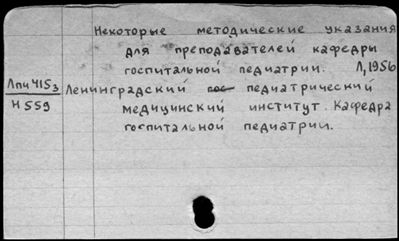 Некоторые методические указания
для преподавателей кафедры
госпитальной педиатрии. Л, 1956
Лпи 4153
Н 559
Ленинградский педиатрический
медицинский институт. Кафедра
госпитальной педиатрии.